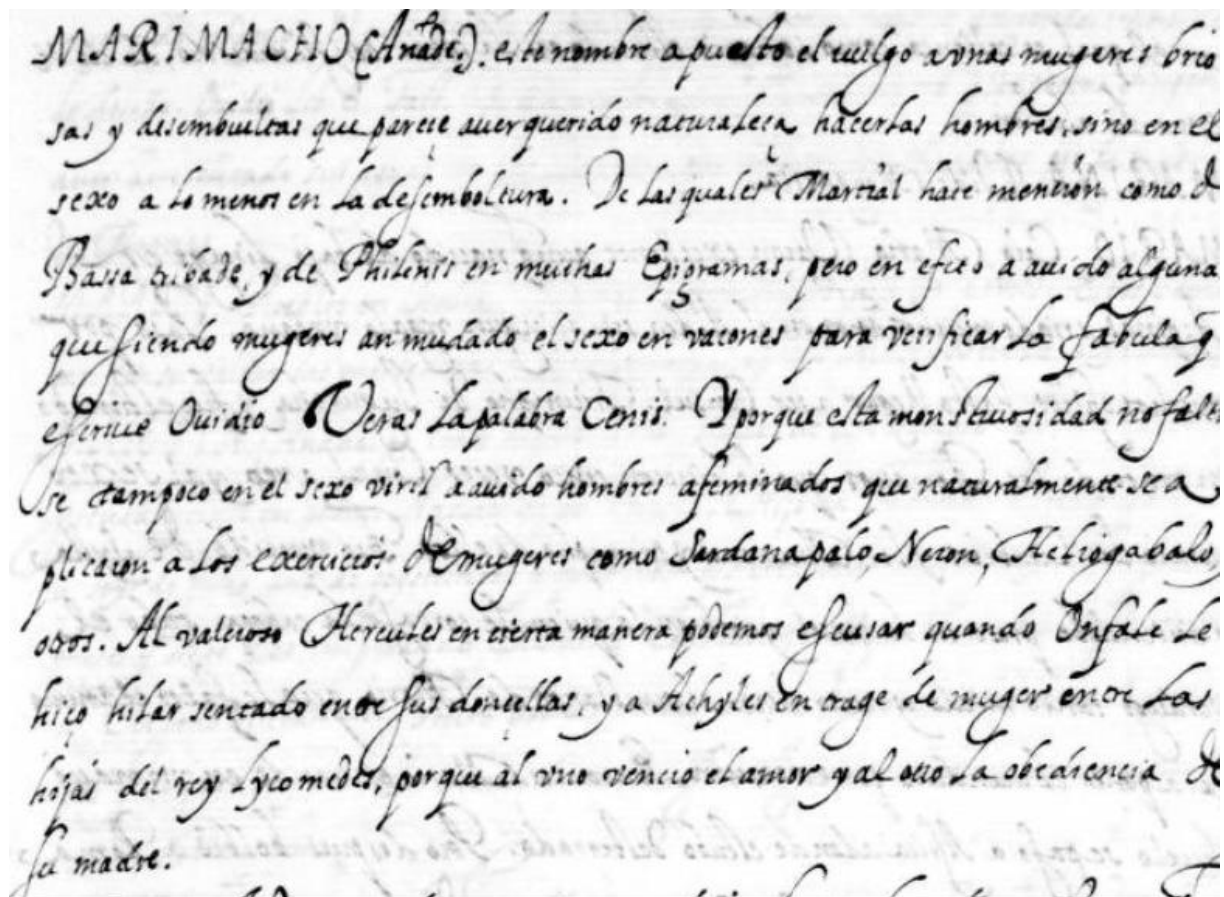 MARIMACHO (Añade.). este nombre a puesto el vulgo a vnas mugeres brio
sas y desembueltas que pareçe auer querido naturaleça hacerlas hombres, sino en el
sexo a lo menos en la desemboltura. De las quales Marçial haze mençion como d
Bassa tribade, y de Philenis en muchas Epigramas, pero en efeto a auido alguna
que siendo mugeres an mudado el sexo en varones para verificar la fabula q̃
escriue Ouidio Veras la palabra Cenis. Y porque esta monstruosidad no falt
se tampoco en el sexo viril a auido hombres afeminados que naturalmente se a
plicaron a los exercicios de mugeres como Sardanapalo, Neron, Heliogabalo,
otros. Al valeroso Hercules en cierta manera podemos escusar quando Onfale le
hiço hilar sentado entre sus donçellas, y a Achyles en trage de muger entre las
hijas del rey Lycomedes, porque al vno venció el amor y al otro la obediencia de
su madre.